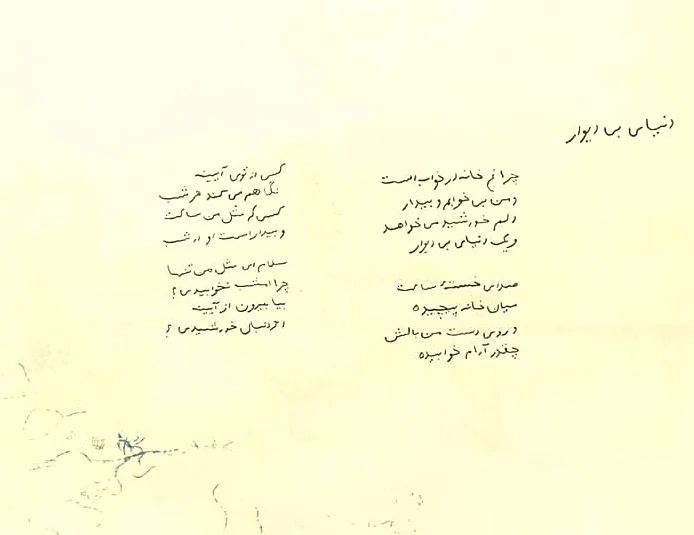 دنیای بی دیوار
چراغ خانه در خواب است
و من بی خوابم و بیدار
دلم خورشید می خواهد
و یک دنیای بی دیوار
صدای خستهٔ ساعت
میان خانه پیچیده
و روی دست من بالش
چقدر آرام خوابیده
کسی از توی آیینه
نگاهم می کند هر شب
کسی که مثل من ساکت
و بیدار است او هر شب
سلام ای مثل من تنها
چرا امشب نخوابیدی؟
بیا بیرون از آیینه
اگر دنبال خورشیدی؟